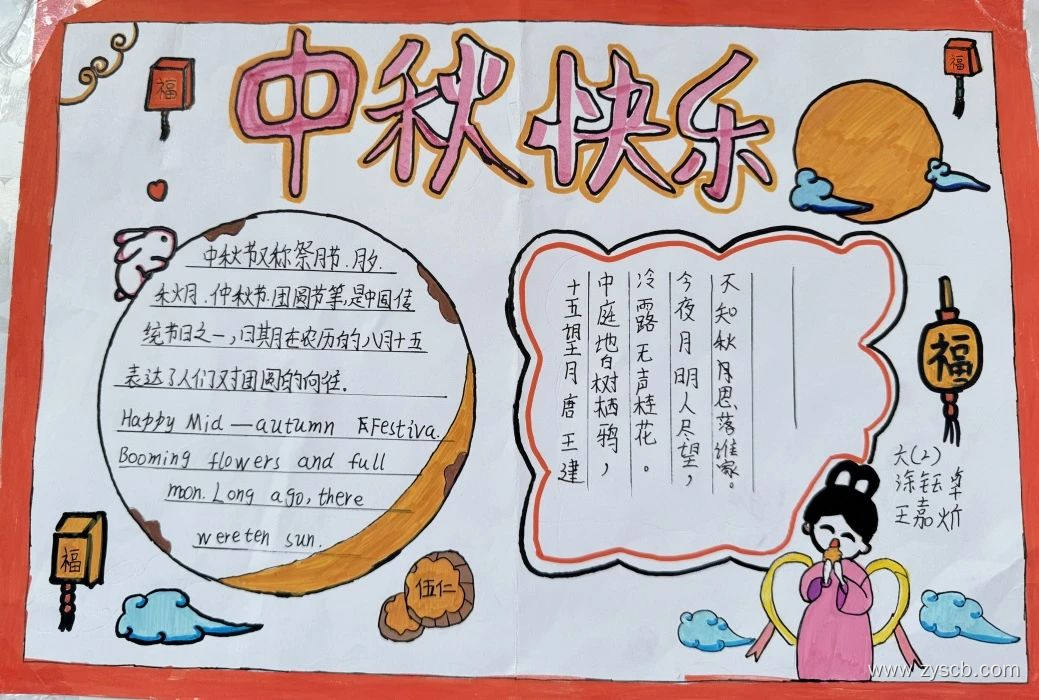 中秋快乐
福
福
中秋节又称祭月节.月夕.
秋月.仲秋节.团圆节等,是中国传
统节日之一,日期在农历的八月十五
表达了人们对团圆的向往.
Happy Mid —autumn Festiva.
Booming flowers and full
moon. Long ago, there
wereten sun.
十五望月 唐 王建
中庭地白树栖鸦,
冷露无声桂花。
今夜月明人尽望,
不知秋月思落谁家。
福
六(2)
涂钰卓
王嘉炘
福
伍仁
www.zyscb.com